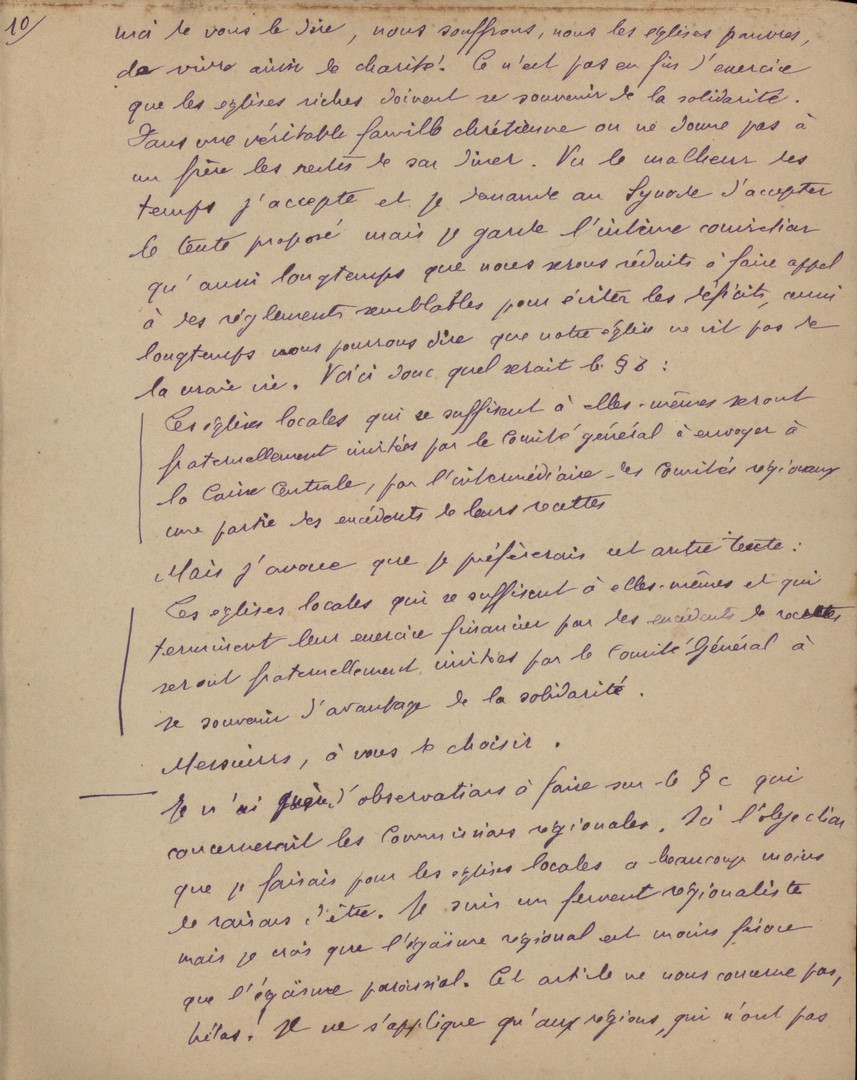 10/
moi de vous le dire, nous souffrons, nous les églises pauvres,
de vivre ainsi de charité. Ce n'est pas en fin d'exercice
que les églises riches doivent se souvenir de la solidarité.
Dans une véritable famille chrétienne on ne donne pas à
un frère les restes de son diner. Vu le malheur des
temps j'accepte et je demande au Synode d'accepter
le texte proposé mais je garde l'intime conviction
qu'aussi longtemps que nous serons réduits à faire appel
à des règlements semblables pour éviter les déficits, aussi
longtemps nous pourrons dire que notre église ne vit pas de
la vraie vie. Voici donc quel serait le § b :
Les églises locales qui se suffisent à elles-mêmes seront
fraternellement invitées par le Comité général à envoyer à
la Caisse Centrale, par l'intermédiaire des Comités régionaux
une partie des excédents de leurs recettes
Mais j'avoue que je préfèrerais cet autre texte :
Les églises locales qui se suffisent à elles-mêmes et qui
terminent leur exercice financier par des excédents de recettes
seront fraternellement invitées par le Comité Général à
se souvenir d'avantage de la solidarité.
Messieurs, à vous de choisir.
Je n'ai guère d'observations à faire sur le § c qui
concernerait les Commissions régionales. Ici l'objection
que je faisais pour les églises locales a beaucoup moins
de raisons d'être. Je suis un fervent régionaliste
mais je crois que l'égoïsme régional est moins féroce
que l'égoïsme paroissial. Cet article ne nous concerne pas,
hélas ! Il ne s'applique qu'aux régions, qui n'ont pas